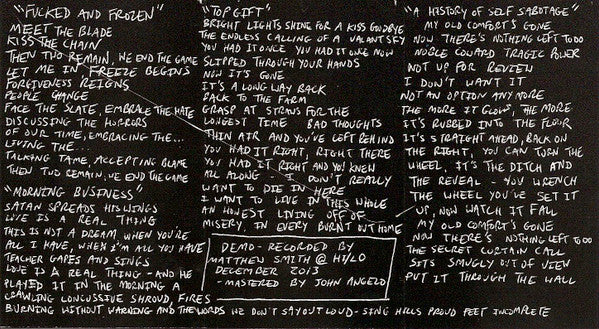 "FUCKED AND FROZEN"
MEET THE BLADE
KISS THE CHAIN
THEN TWO REMAIN, WE END THE GAME
LET ME IN FREEZE BEGINS
FORGIVENESS REIGNS
PEOPLE CHANGE
FACE THE SLATE, EMBRACE THE HATE
DISCUSSING THE HORRORS
OF OUR TIME, EMBRACING THE...
LIVING THE...
TALKING TAME, ACCEPTING BLAME
THEN TWO REMAIN, WE END THE GAME
"MORNING BUSINESS"
SATAN SPREADS HIS WINGS
LOVE IS A REAL THING
THIS IS NOT A DREAM, WHEN YOU'RE
ALL I HAVE, WHEN I'M ALL YOU HAVE
TEACHER GAPES AND SINGS
LOVE IS A REAL THING - AND HE
PLAYED IT IN THE MORNING A
CRAWLING CONCUSSIVE SHROUD, FIRES
BURNING WITHOUT WARNING AND THE WORDS WE DON'T SAY OUT LOUD - SING HILLS PROUD FEET INCOMPLETE
"TOP GIFT"
BRIGHT LIGHTS SHINE FOR A KISS GOODBYE
THE ENDLESS CALLING OF A VACANT SKY
YOU HAD IT ONCE YOU HAD IT ONCE NOW
SLIPPED THROUGH YOUR HANDS
NOW IT'S GONE
IT'S A LONG WAY BACK
BACK TO THE FARM
GRASP AT STRAWS FOR THE
LONGEST TIME BAD THOUGHTS
THIN AIR AND YOU'VE LEFT BEHIND
YOU HAD IT RIGHT, RIGHT THERE
YOU HAD IT RIGHT AND YOU KNEW
ALL ALONG - I DON'T REALLY
WANT TO DIE IN HERE
I WANT TO LIVE IN THIS WHOLE
AN HONEST LIVING OFF OF
MISERY, IN EVERY BURNT OUT HOME
DEMO - RECORDED BY
MATTHEW SMITH @ HI/LO
DECEMBER 2013
- MASTERED BY JOHN ANGELO
"A HISTORY OF SELF SABOTAGE"
MY OLD COMFORT'S GONE
NOW THERE'S NOTHING LEFT TO DO
NOBLE COWARD TRAGIC POWER
NOT UP FOR REVIEW
I DON'T WANT IT
NOT AN OPTION ANYMORE
THE MORE IT GLOWS, THE MORE
IT'S RUBBED INTO THE FLOOR
IT'S STRAIGHT AHEAD, BACK ON
THE RIGHT, YOU CAN TURN THE
WHEEL, IT'S THE DITCH AND
THE REVEAL - YOU WRENCH
THE WHEEL YOU'VE SET IT
UP, NOW WATCH IT FALL
MY OLD COMFORT'S GONE
NOW THERE'S NOTHING LEFT TO DO
THE SECRET CURTAIN CALL
SITS SMUGLY OUT OF VIEW
PUT IT THROUGH THE WALL